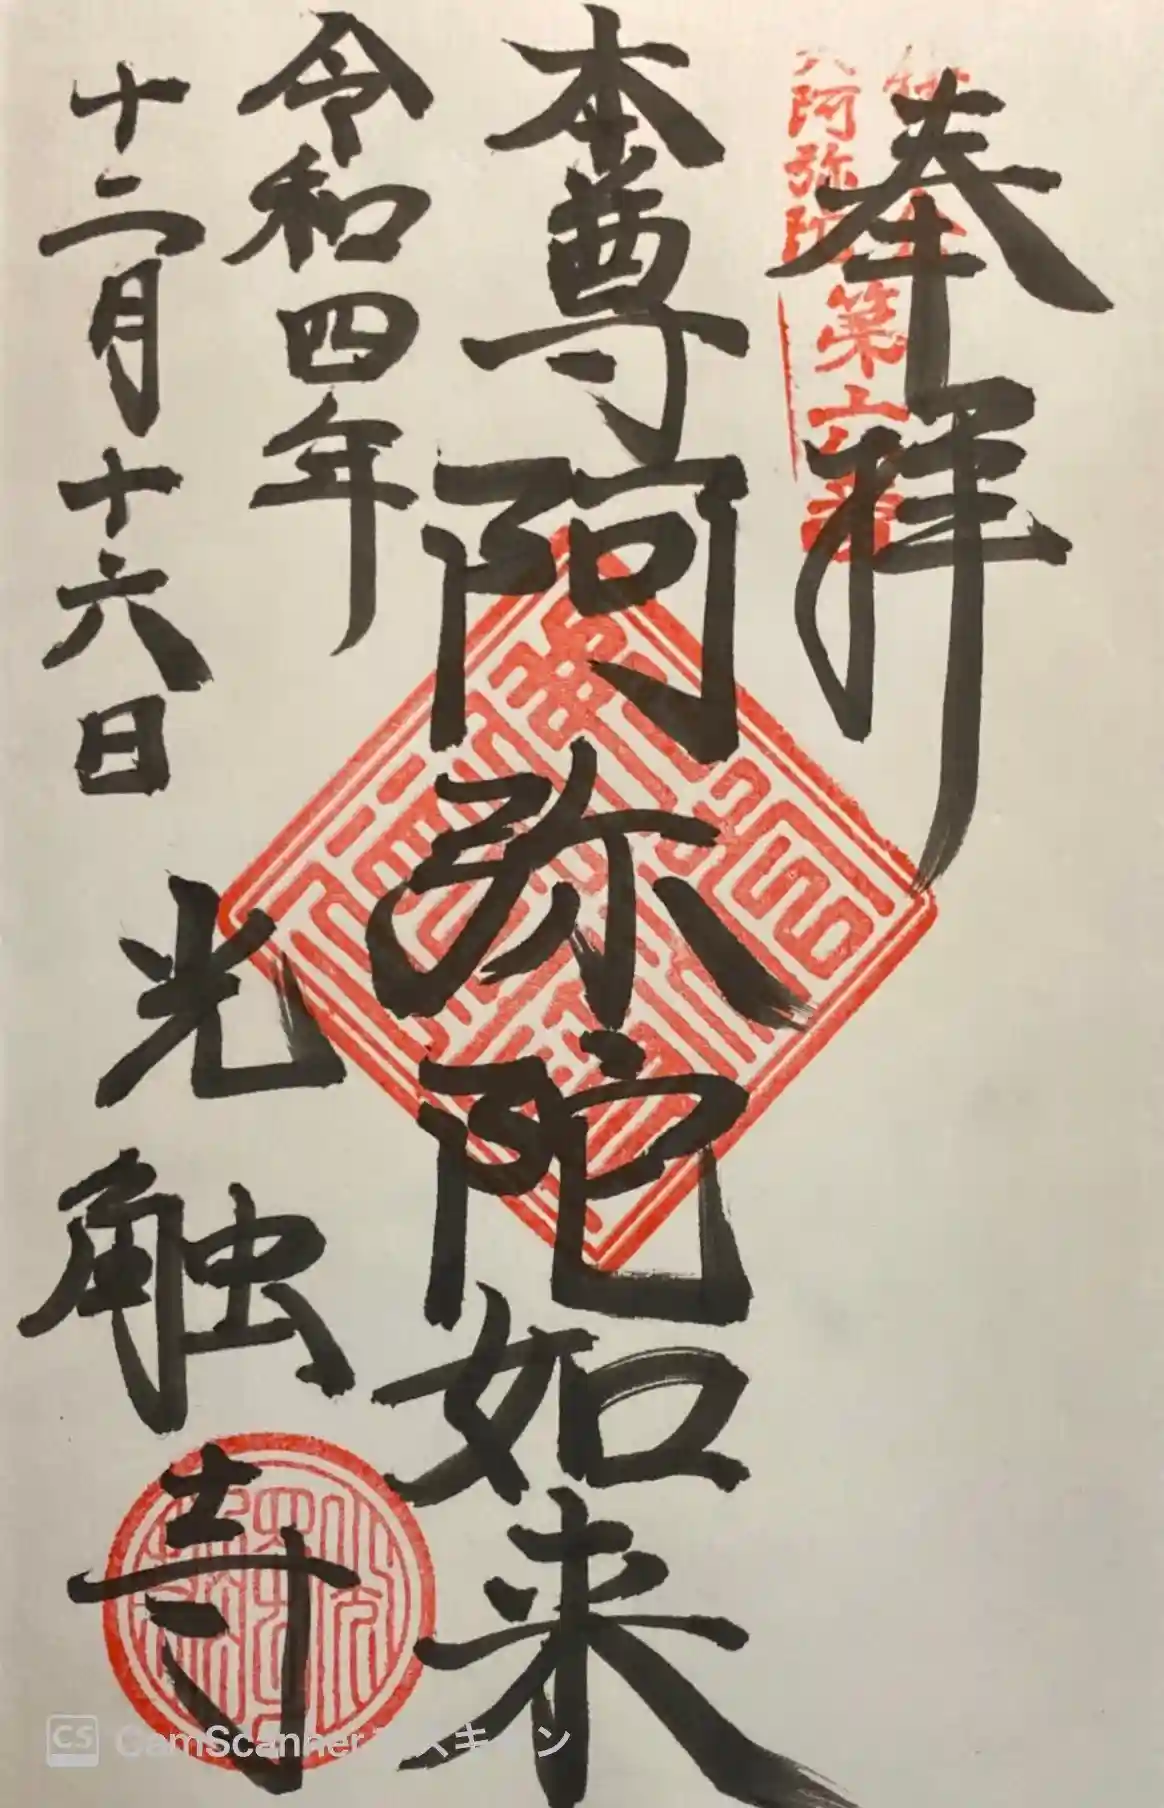 奉拝
阿弥陀
第
番
本尊阿弥陀如来
令和四年
十二月十六日
光触寺
CS CamScanner でスキャン